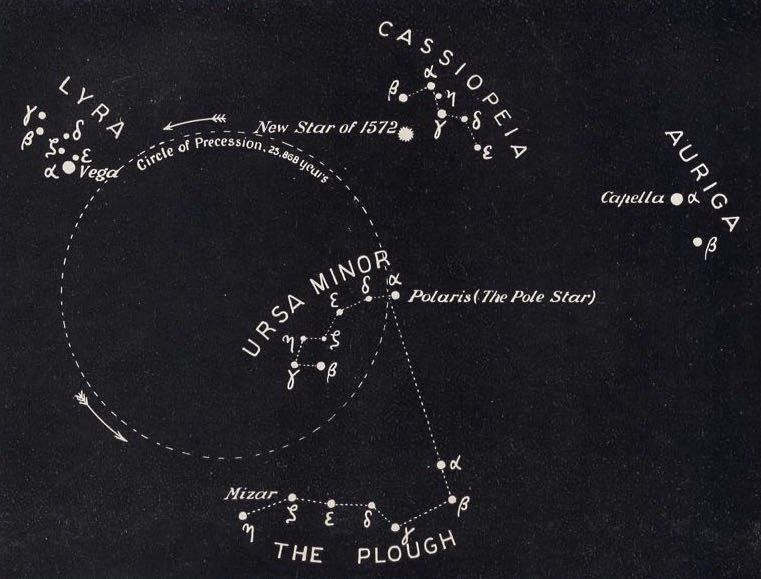 CASSIOPEIA
α
β
η
γ
δ
ε
New Star of 1572
LYRA
γ
β
δ
ζ
ε
α Vega
Circle of Precession, 25,868 years
AURIGA
Capella α
β
URSA MINOR
α
δ
ε
Polaris (The Pole Star)
η
ζ
γ
β
α
β
Mizar
η
ζ
ε
δ
γ
THE PLOUGH